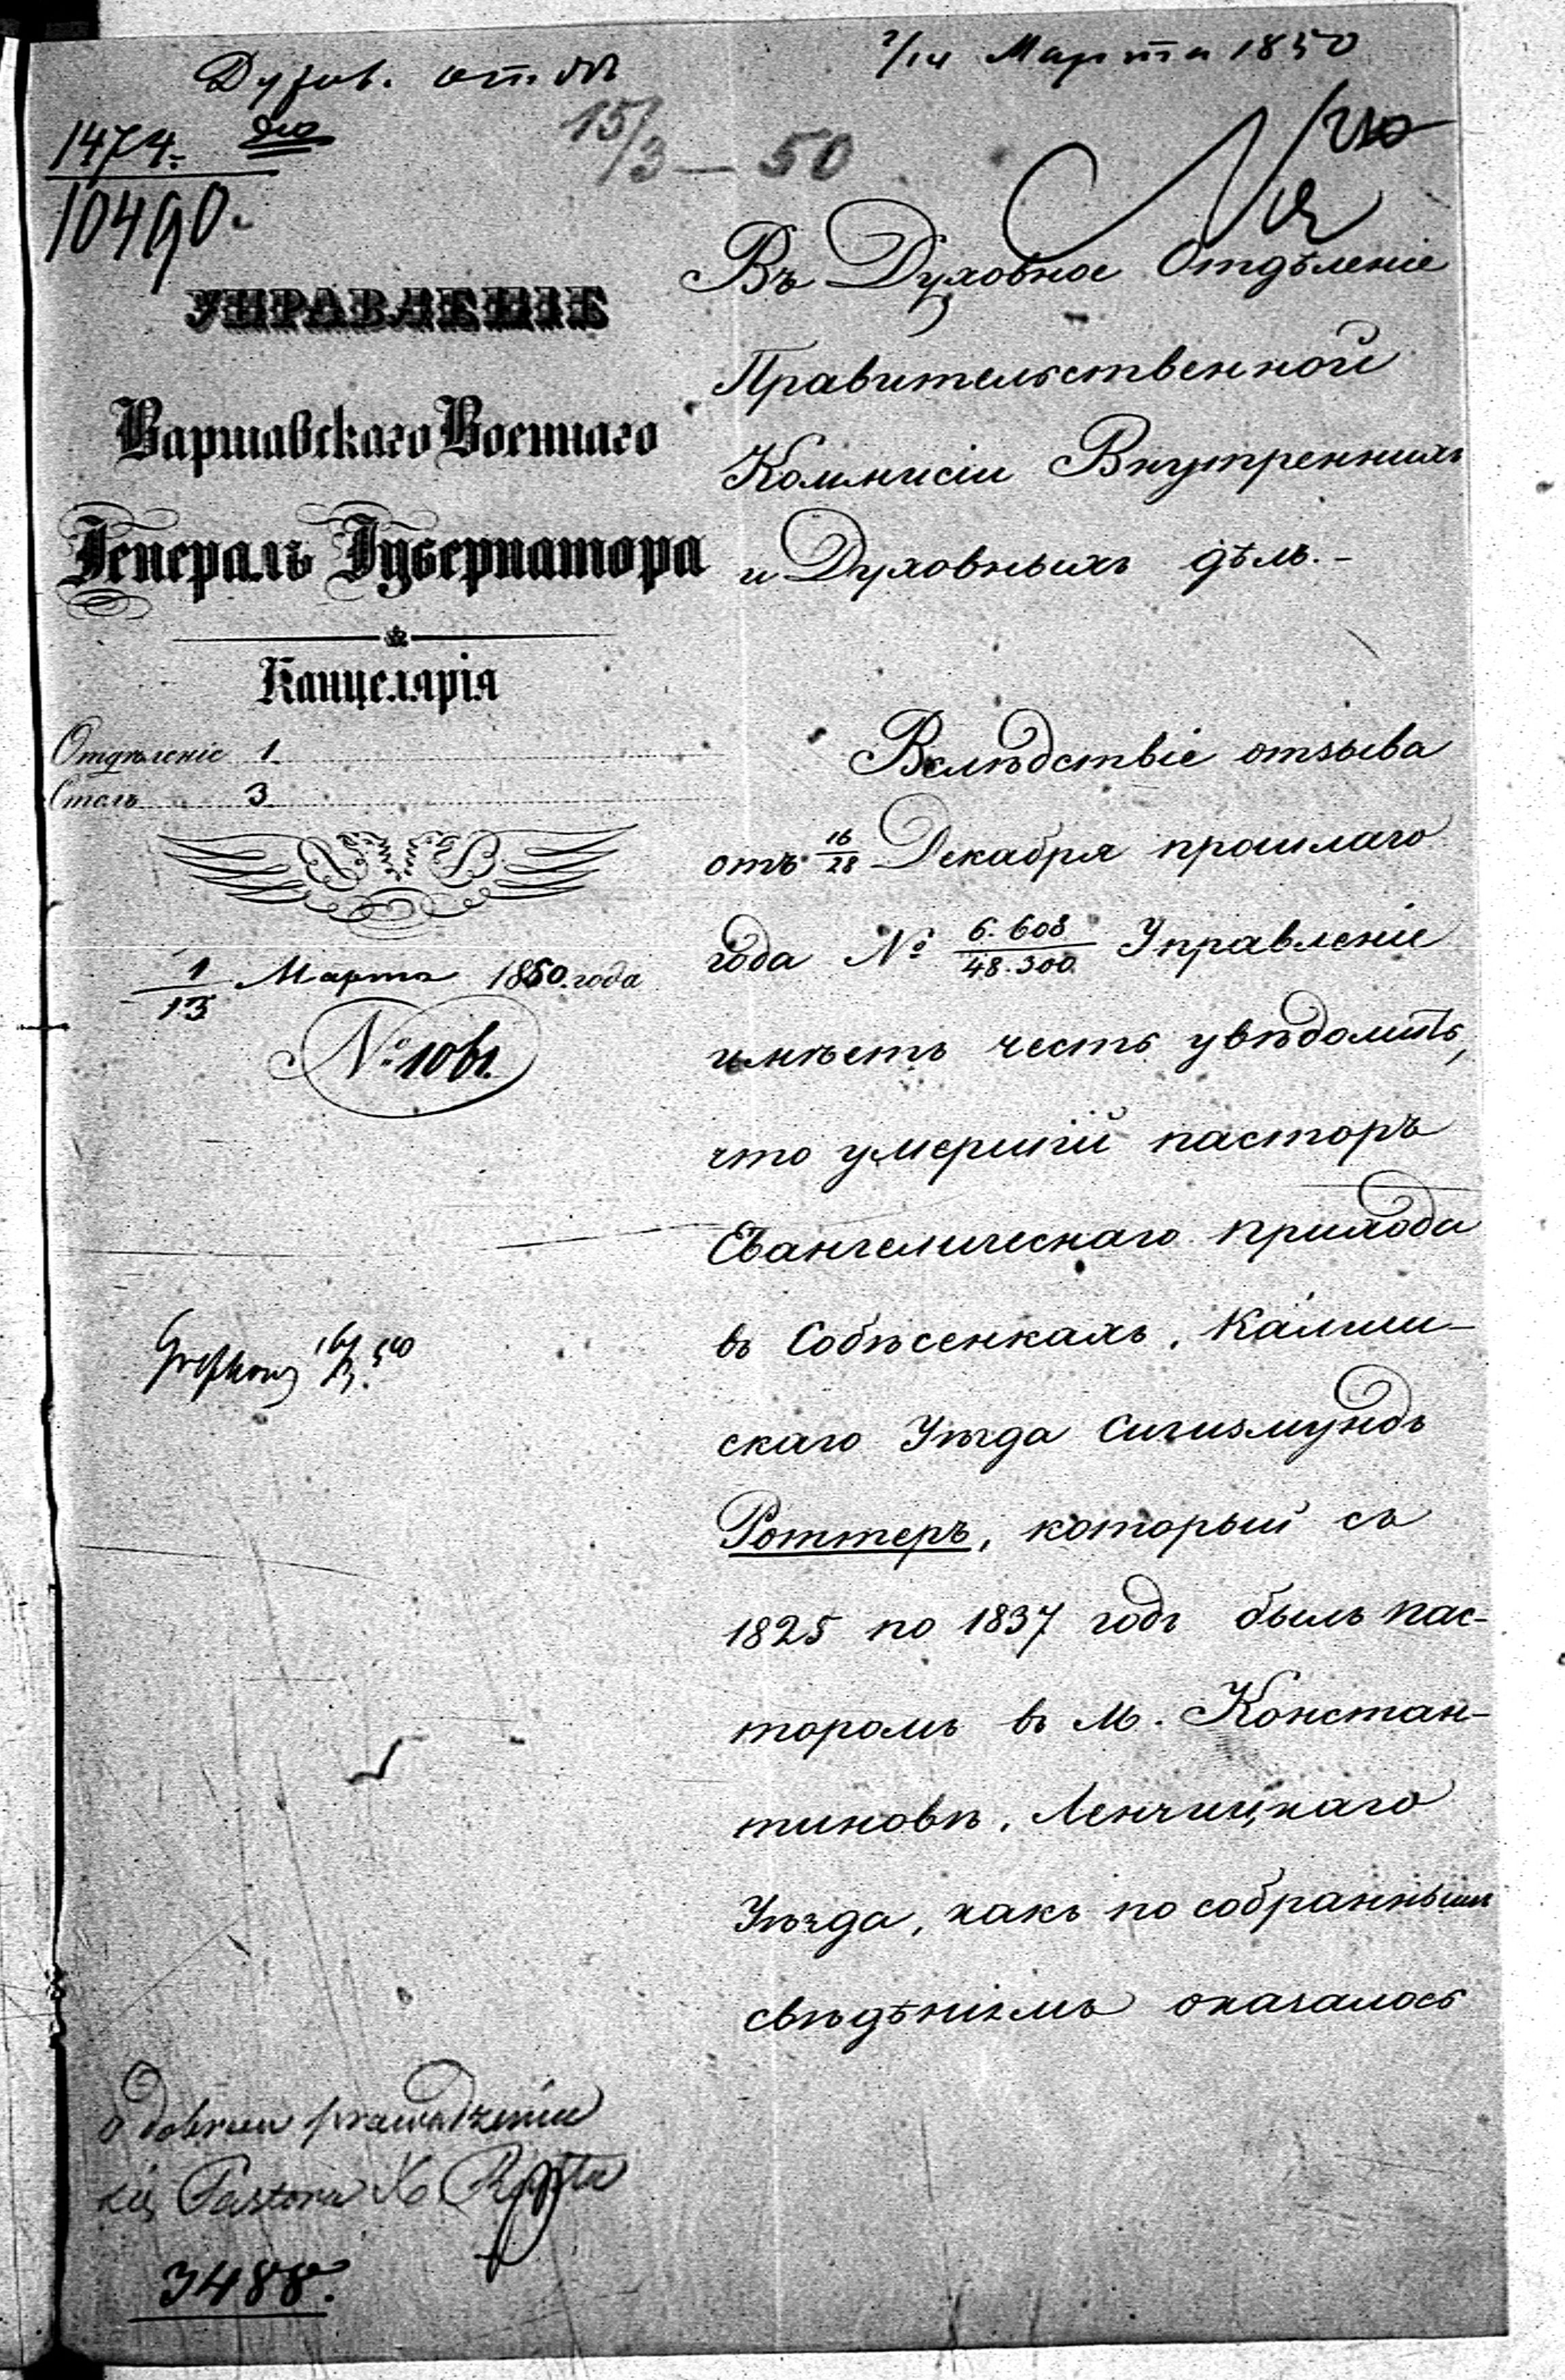 Духов. отдѣл
2/14 Марта 1850
1474.
10490.
15/3 — 50
УПРАВЛЕНІЕ
Варшавскаго Военнаго
Генералъ Губернатора
Канцелярія
Отдѣленіе 1.
Столъ 3
1/13 Марта 1850. года
№ 1061.
Въ Духовное Отдѣленіе
Правительственной
Коммисіи Внутреннихъ
и Духовныхъ дѣлъ.-
Вслѣдствіе отзыва
отъ 16/28 Декабря прошлаго
года № 6.608/48.300 Управленіе
имѣетъ честь увѣдомить,
что умершій пасторъ
Евангелическаго прихода
въ Собѣсенкахъ, Калиш-
скаго Уѣзда Сигизмундъ
Роттеръ, который съ
1825 по 1837 годъ былъ пас-
торомъ въ м. Констан-
тиновѣ, Ленчицкаго
Уѣзда, какъ по собраннымъ
свѣдѣніямъ оказалось
o dobrem prowadzeniu
się Pastora X.
3488.